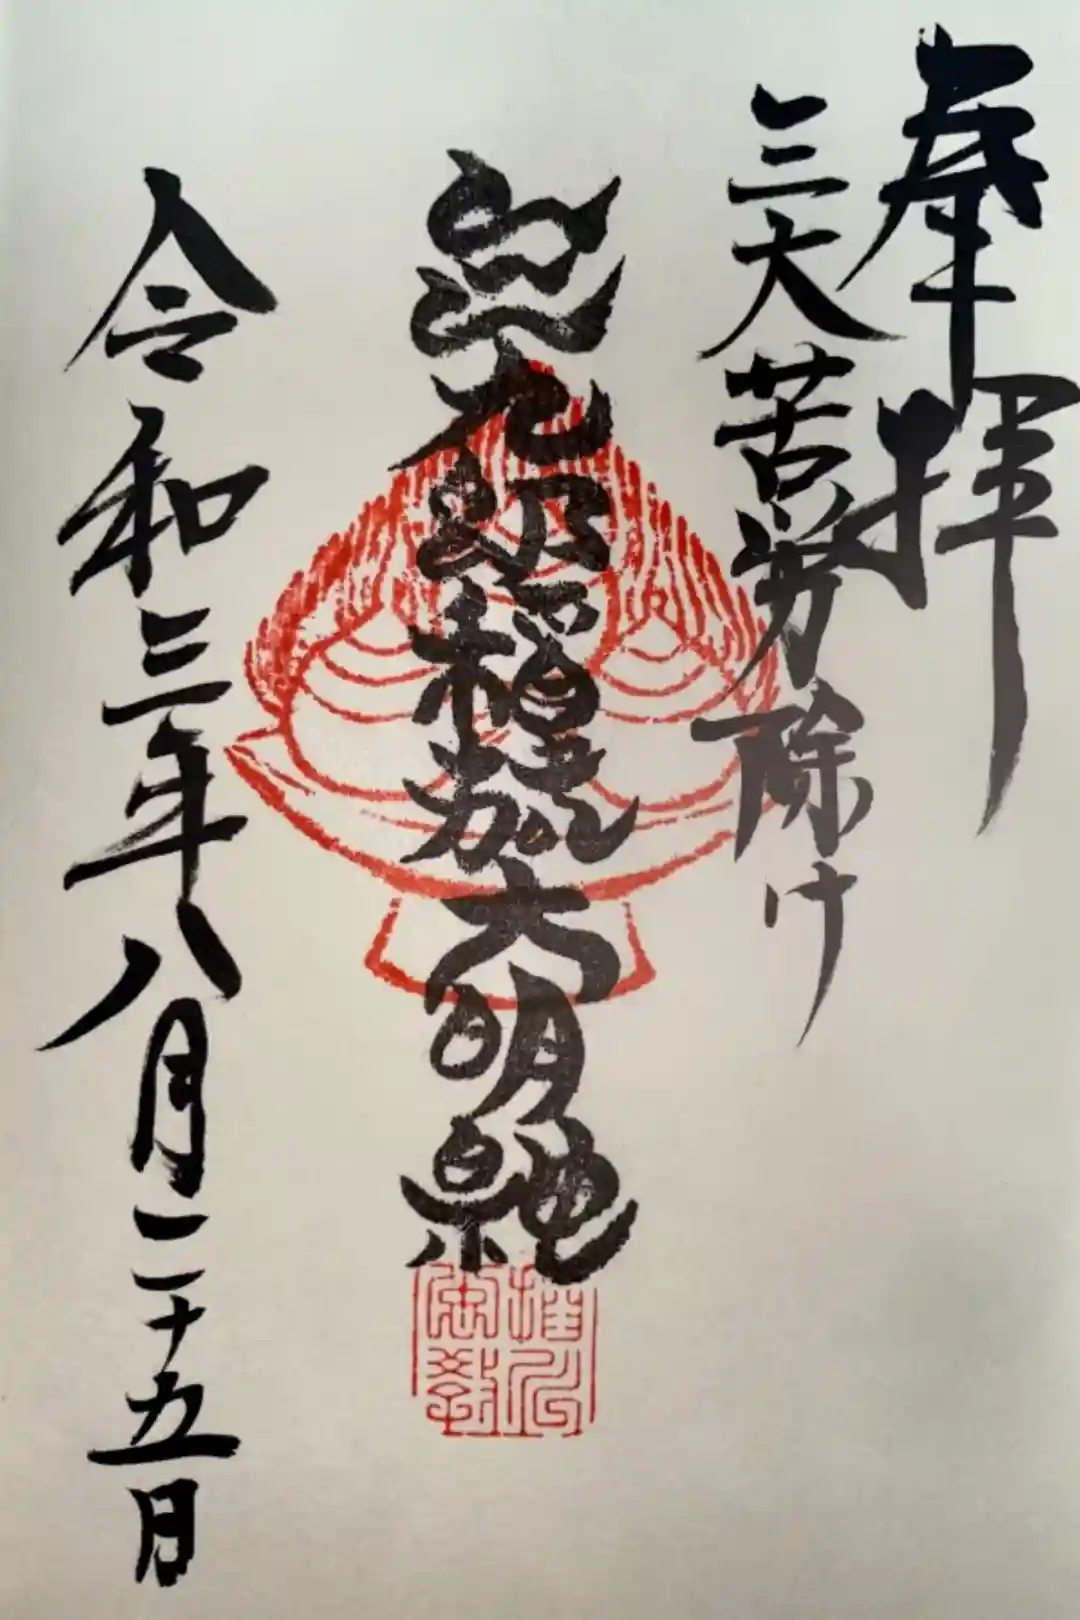 奉拝
三大苦労除け
三九郎稲荷大明神
令和三年八月二十五日